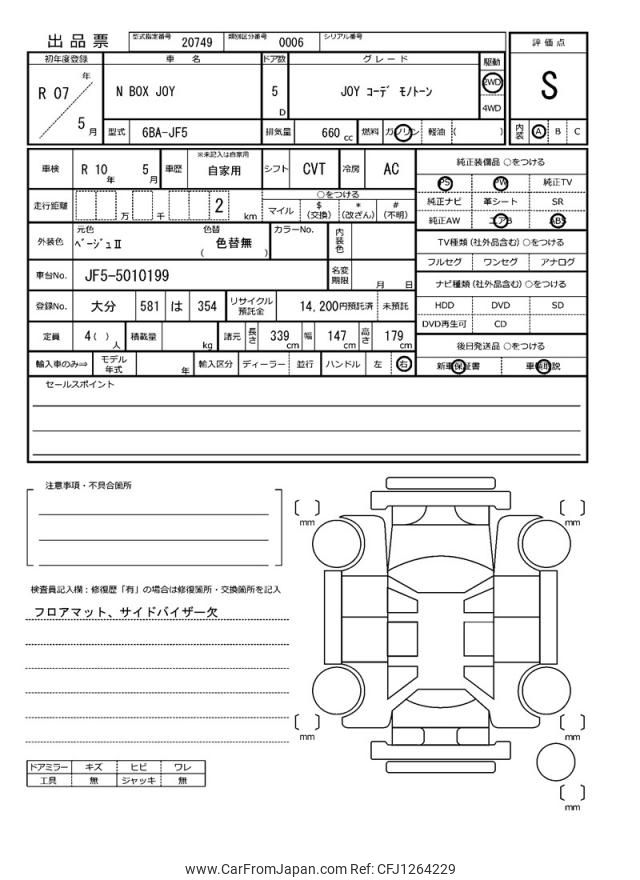 出品票 型式指定番号 20749 類別区分番号 0006 シリアル番号
評価点
S
内装 A B C
初年度登録 車名 ドア数 グレード 駆動
R 07 年 5 月
N BOX JOY 5 D JOY コーデ モノトーン 2WD
4WD
型式 6BA-JF5 排気量 660 cc 燃料 ガソリン 軽油 ( )
車検 R 10 年 5 月 車歴 ※未記入は自家用 自家用 シフト CVT 冷房 AC
走行距離 万 千 2 km ○をつける
マイル $ (交換) * (改ざん) # (不明)
外装色 元色 ベージュⅡ 色替 色替無 ( ) カラーNo. 内装色
車台No. JF5-5010199 名変期限 月 日
登録No. 大分 581 は 354 リサイクル預託金 14,200円預託済 未預託
定員 4 ( ) 人 積載量 kg 諸元 長さ 339 cm 幅 147 cm 高さ 179 cm
輸入車のみ⇒ モデル年式 年 輸入区分 ディーラー 並行 ハンドル 左 右
純正装備品 ○をつける
PS PW 純正TV
純正ナビ 革シート SR
純正AW エアB ABS
TV種類 (社外品含む) ○をつける
フルセグ ワンセグ アナログ
ナビ種類 (社外品含む) ○をつける
HDD DVD SD
DVD再生可 CD
後日発送品 ○をつける
新車保証書 車輌取説
セールスポイント
注意事項・不具合箇所
検査員記入欄：修復歴「有」の場合は修復箇所・交換箇所を記入
フロアマット、サイドバイザー欠
ドアミラー キズ ヒビ ワレ
工具 無 ジャッキ 無
mm
mm
mm
mm
mm
www.CarFromJapan.com Ref: CFJ1264229